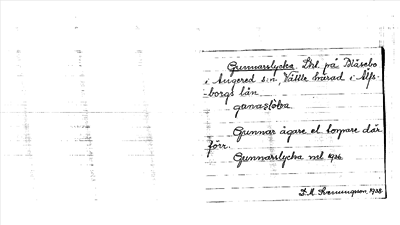 Gunnarslycka. Lht. på Blåsebo
i Angered s:n, Vättle härad i Älfs-
-borgs län.
ganaslöba.
Gunnar ägare el. torpare där
förr.
Gunnarslycka ml. 1926
1938